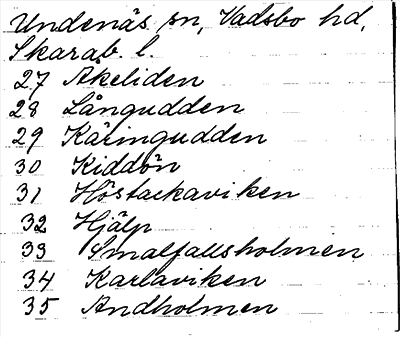 Undenäs sn, Vadsbo hd,
Skarab. l.
27 Åkeliden
28 Långudden
29 Käringudden
30 Kiddön
31 Höstackaviken
32 Hjälp
33 Smalfallsholmen
34 Karlaviken
35 Andholmen